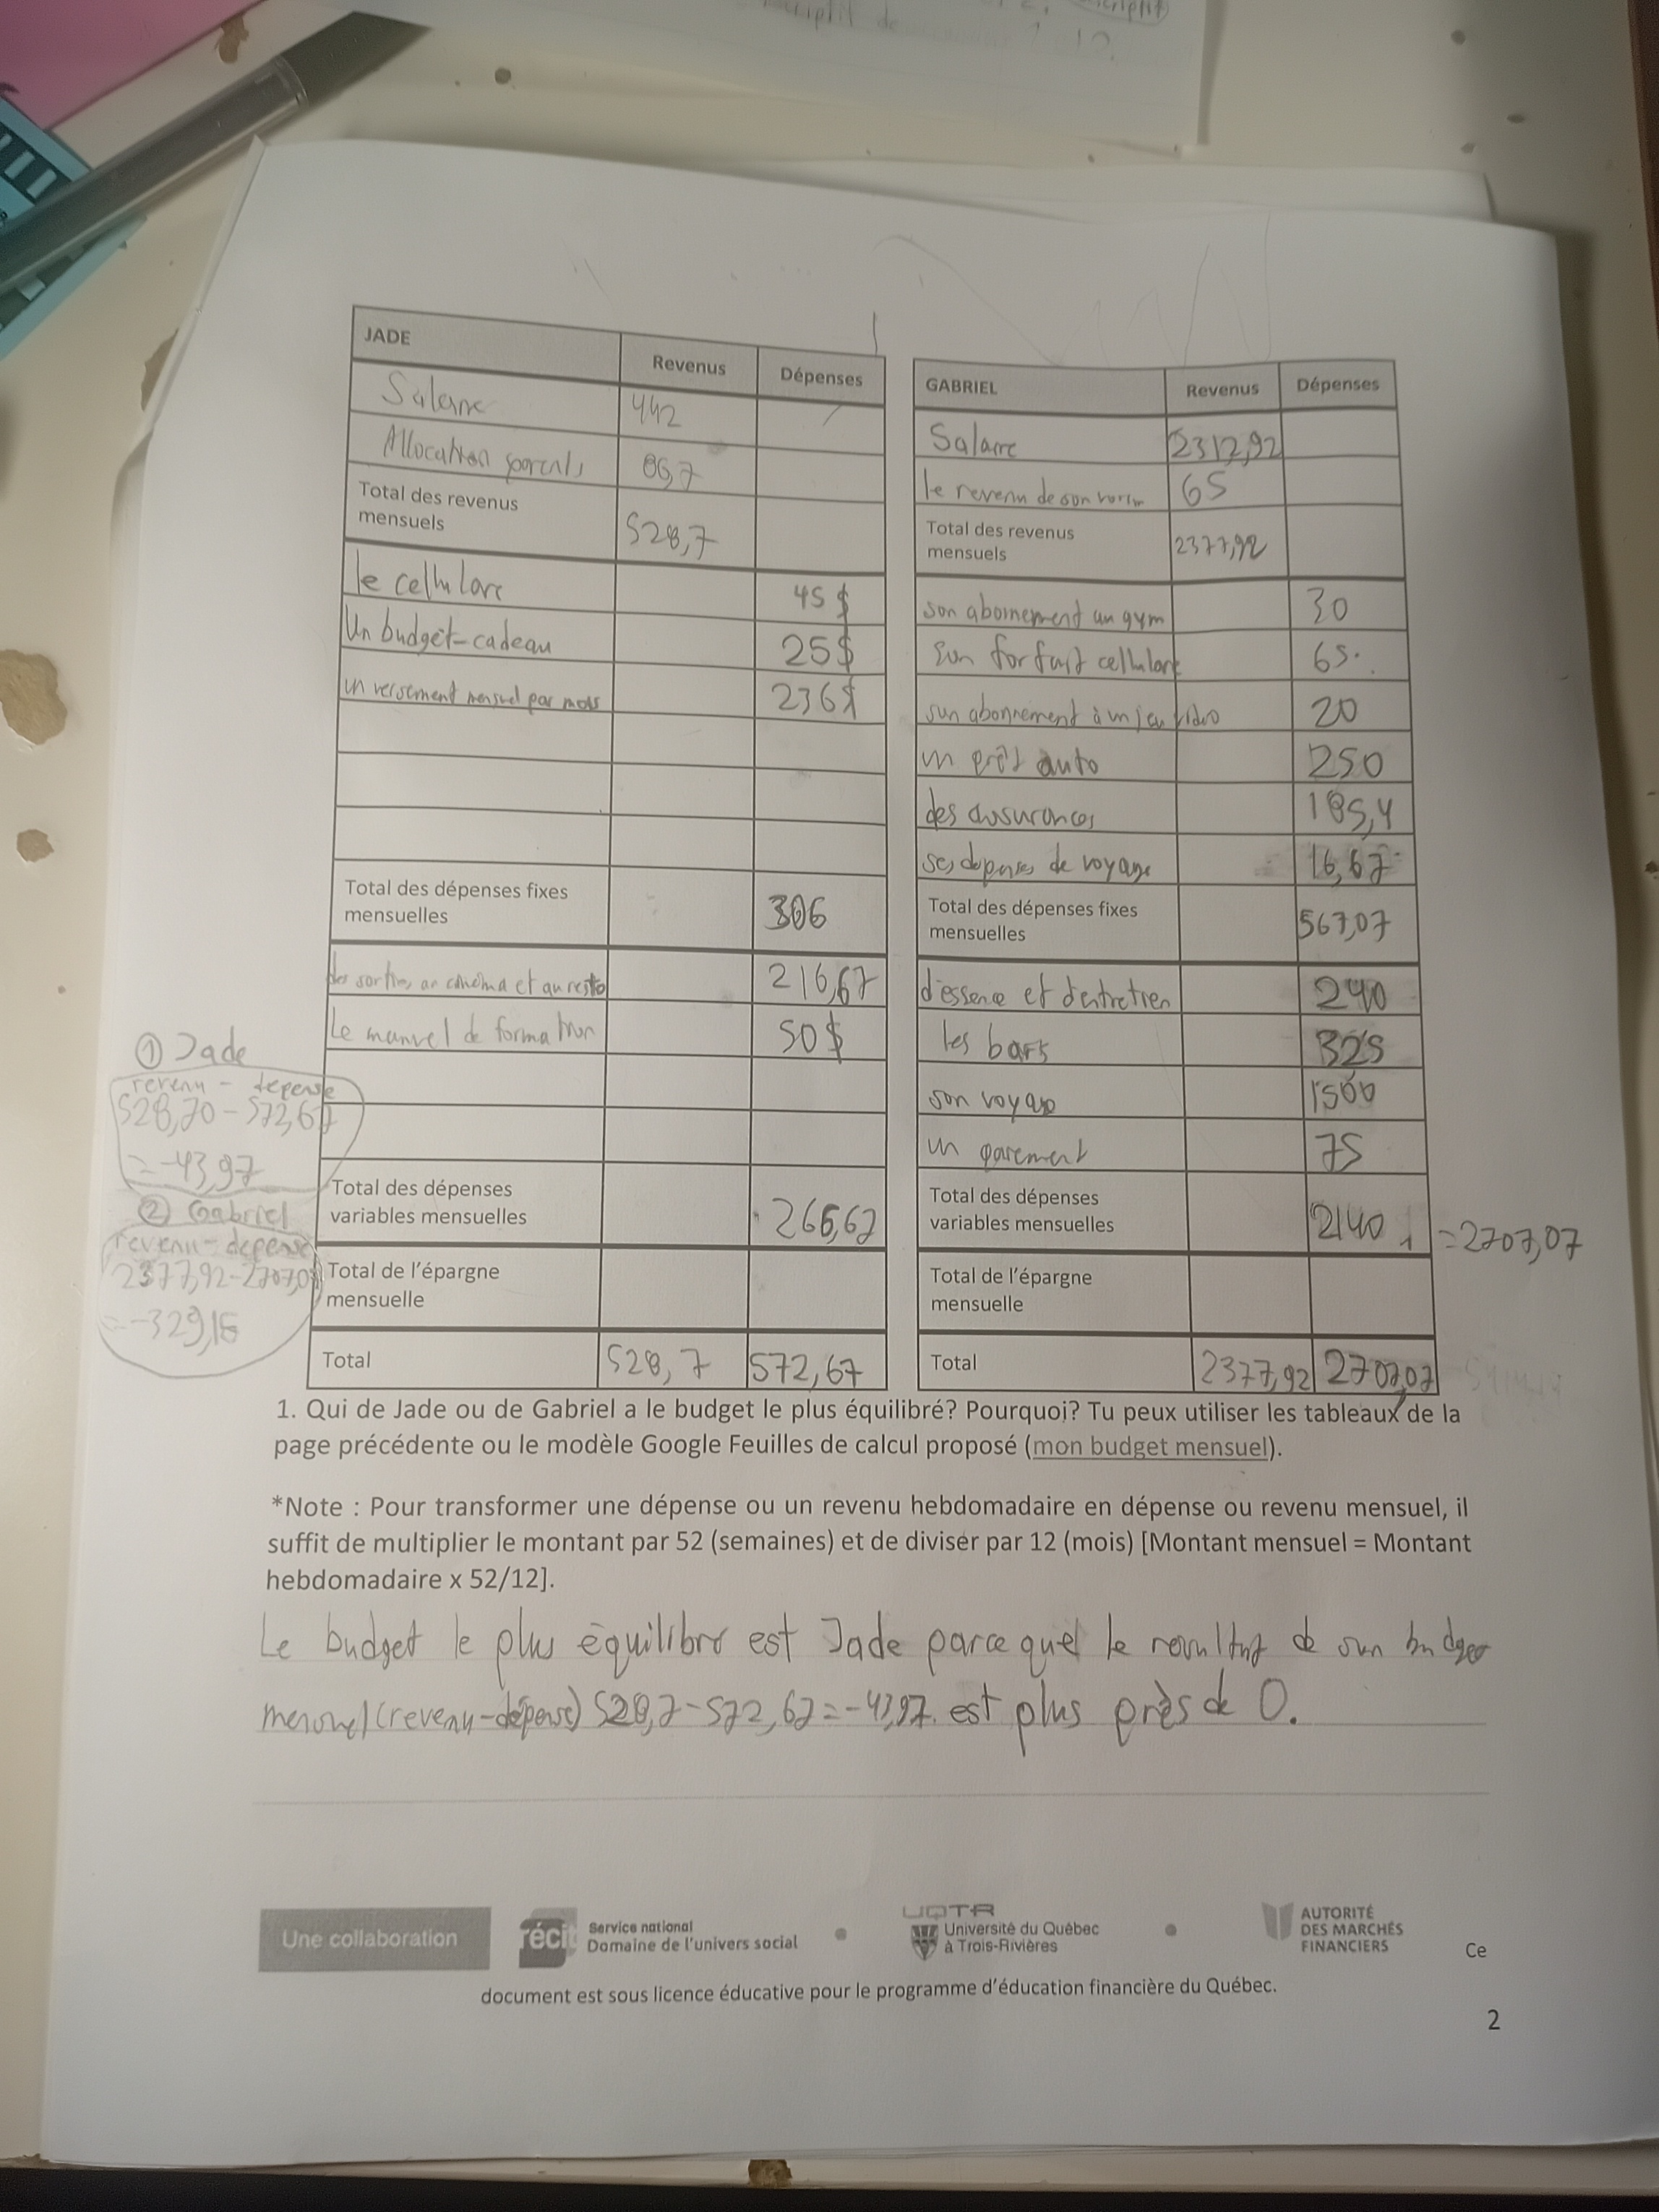 JADE
Revenus
Dépenses
Salaire
442
Allocation parents
86,7
Total des revenus
mensuels
528,7
le cellulare
45 $
Un budget-cadeau
25$
un versement mensuel par mois
236$
Total des dépenses fixes
mensuelles
306
des sorties au cinéma et au resto
216,67
Le manuel de formation
50 $
Total des dépenses
variables mensuelles
266,67
Total de l'épargne
mensuelle
Total
528,7
572,67
① Jade
revenu - depense
528,70 - 572,67
= -43,97
② Gabriel
revenu - depense
2377,92-2707,07
= -329,15
GABRIEL
Revenus
Dépenses
Salaire
2312,92
le revenu de son
65
Total des revenus
mensuels
2377,92
son abonnement au gym
30
Son forfait cellulare
65
son abonnement à un jeu video
20
un prêt auto
250
des assurances
185,4
ses depenses de voyage
16,67
Total des dépenses fixes
mensuelles
567,07
d'essence et d'entretien
240
les bars
325
son voyage
1500
un paiement
75
Total des dépenses
variables mensuelles
2140
=2707,07
Total de l'épargne
mensuelle
Total
2377,92
2707,07
1. Qui de Jade ou de Gabriel a le budget le plus équilibré? Pourquoi? Tu peux utiliser les tableaux de la
page précédente ou le modèle Google Feuilles de calcul proposé (mon budget mensuel).
*Note : Pour transformer une dépense ou un revenu hebdomadaire en dépense ou revenu mensuel, il
suffit de multiplier le montant par 52 (semaines) et de diviser par 12 (mois) [Montant mensuel = Montant
hebdomadaire x 52/12].
Le budget le plus équilibré est Jade parce que le resultat de son budget
mensuel (revenu-dépense) 528,7-572,67=-43,97. est plus près de 0.
Une collaboration
récit
Service national
Domaine de l'univers social
UQTR
Université du Québec
à Trois-Rivières
AUTORITÉ
DES MARCHÉS
FINANCIERS
Ce
document est sous licence éducative pour le programme d'éducation financière du Québec.
2